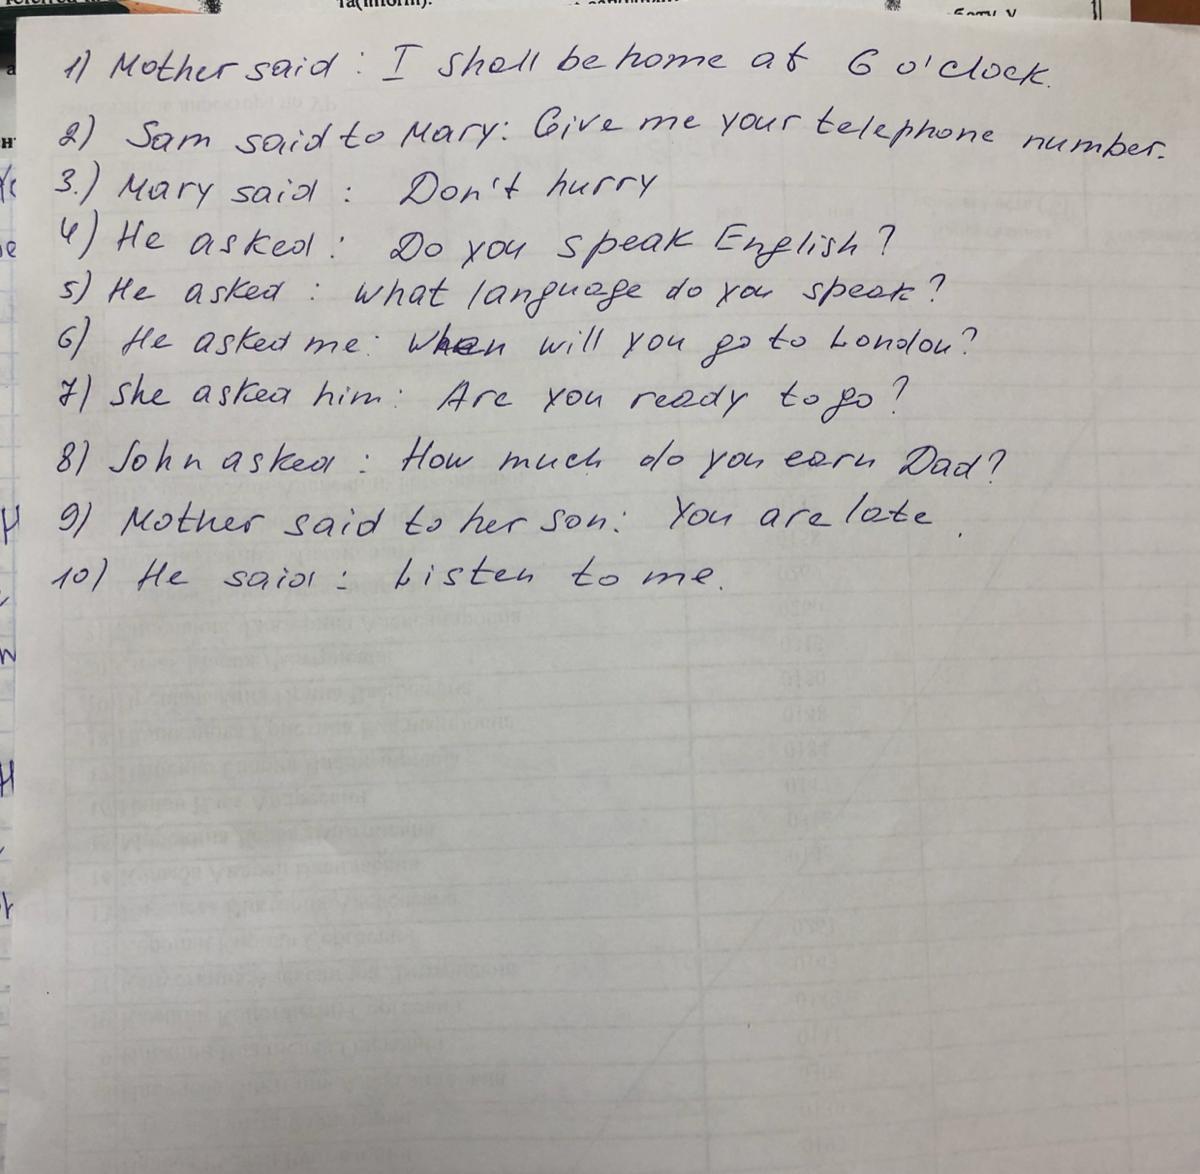 1) Mother said: I shall be home at 6 o'clock.
2) Sam said to Mary: Give me your telephone number.
3.) Mary said: Don't hurry
4) He asked: Do you speak English?
5) He asked: What language do you speak?
6) He asked me: When will you go to London?
7) She asked him: Are you ready to go?
8) John asked: How much do you earn Dad?
9) Mother said to her son: You are late.
10) He said: Listen to me.